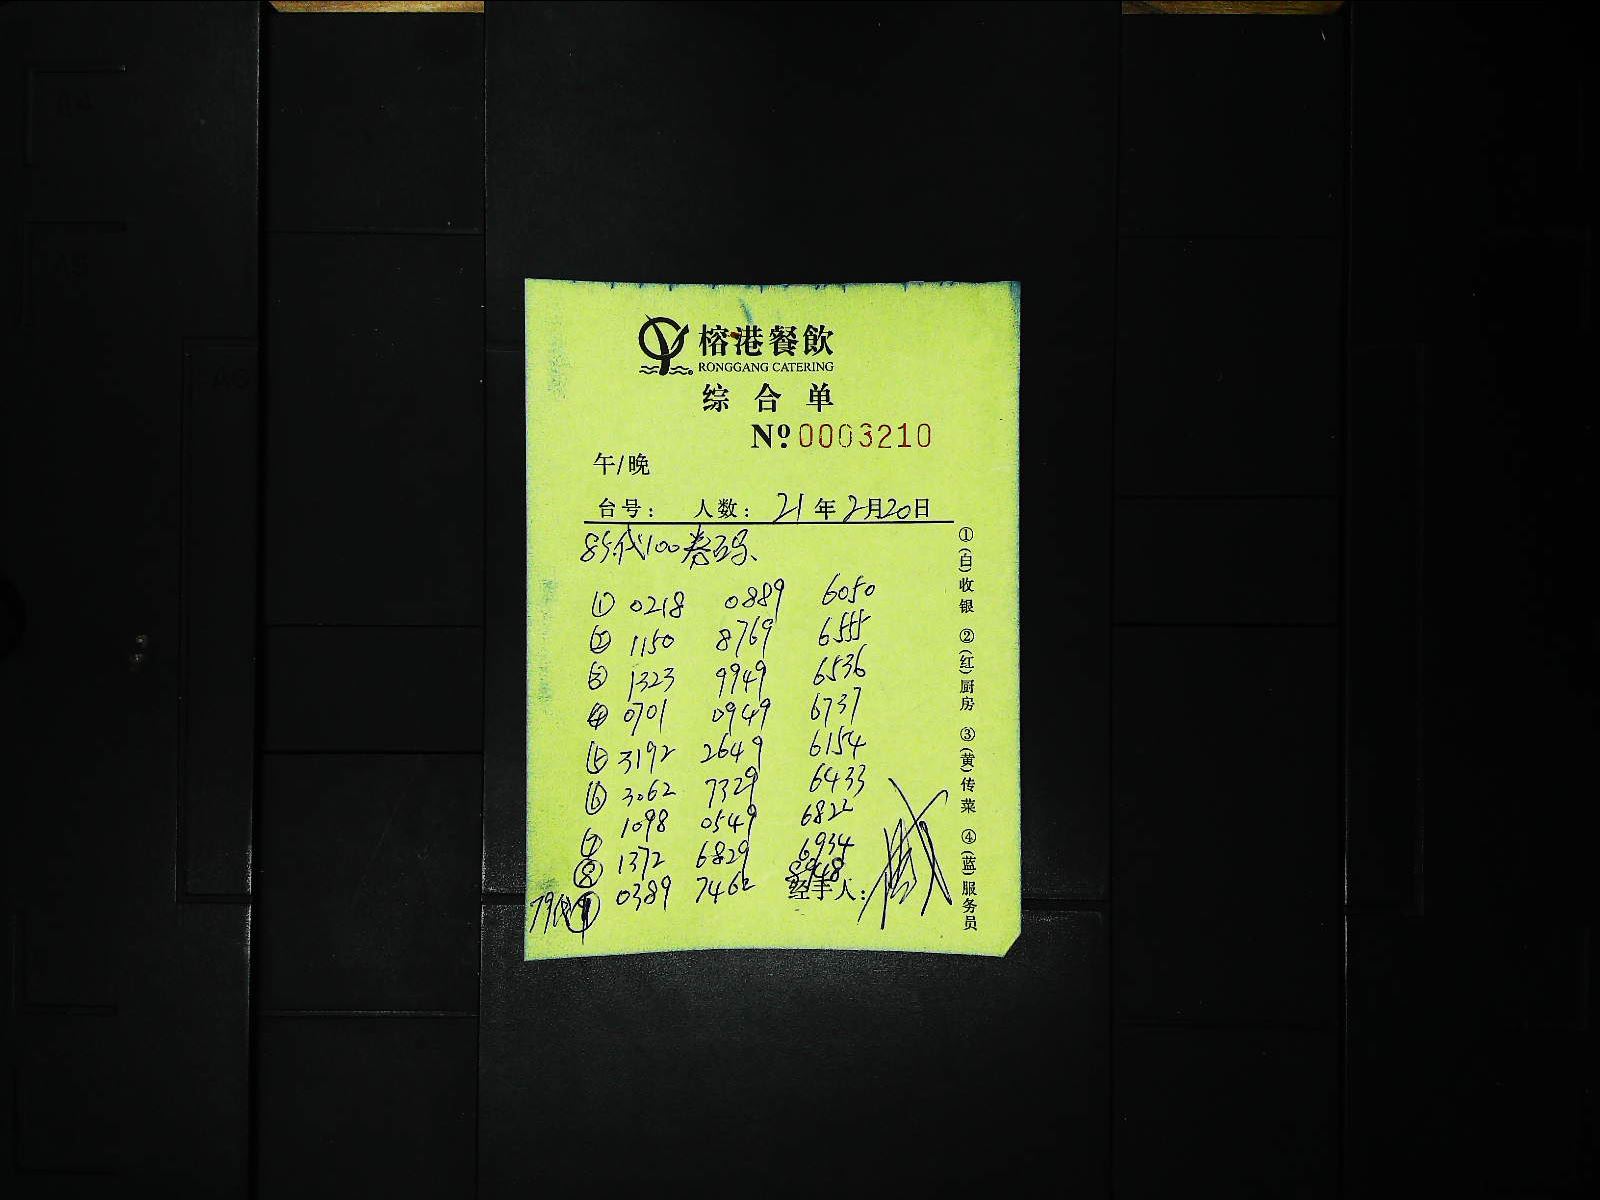 榕港餐飲
RONGGANG CATERING
综合单
Nº0003210
午/晚
台号： 人数： 21年2月20日
85代100券码、
① 0218 0889 6050
② 1150 8769 6555
③ 1323 9949 6536
④ 0701 0949 6737
⑤ 3192 2649 6154
⑥ 3062 7329 6433
⑦ 1098 0549 6822
⑧ 1372 6829 6934
0389 7462 8948
经手人：
①(白)收银 ②(红)厨房 ③(黄)传菜 ④(蓝)服务员